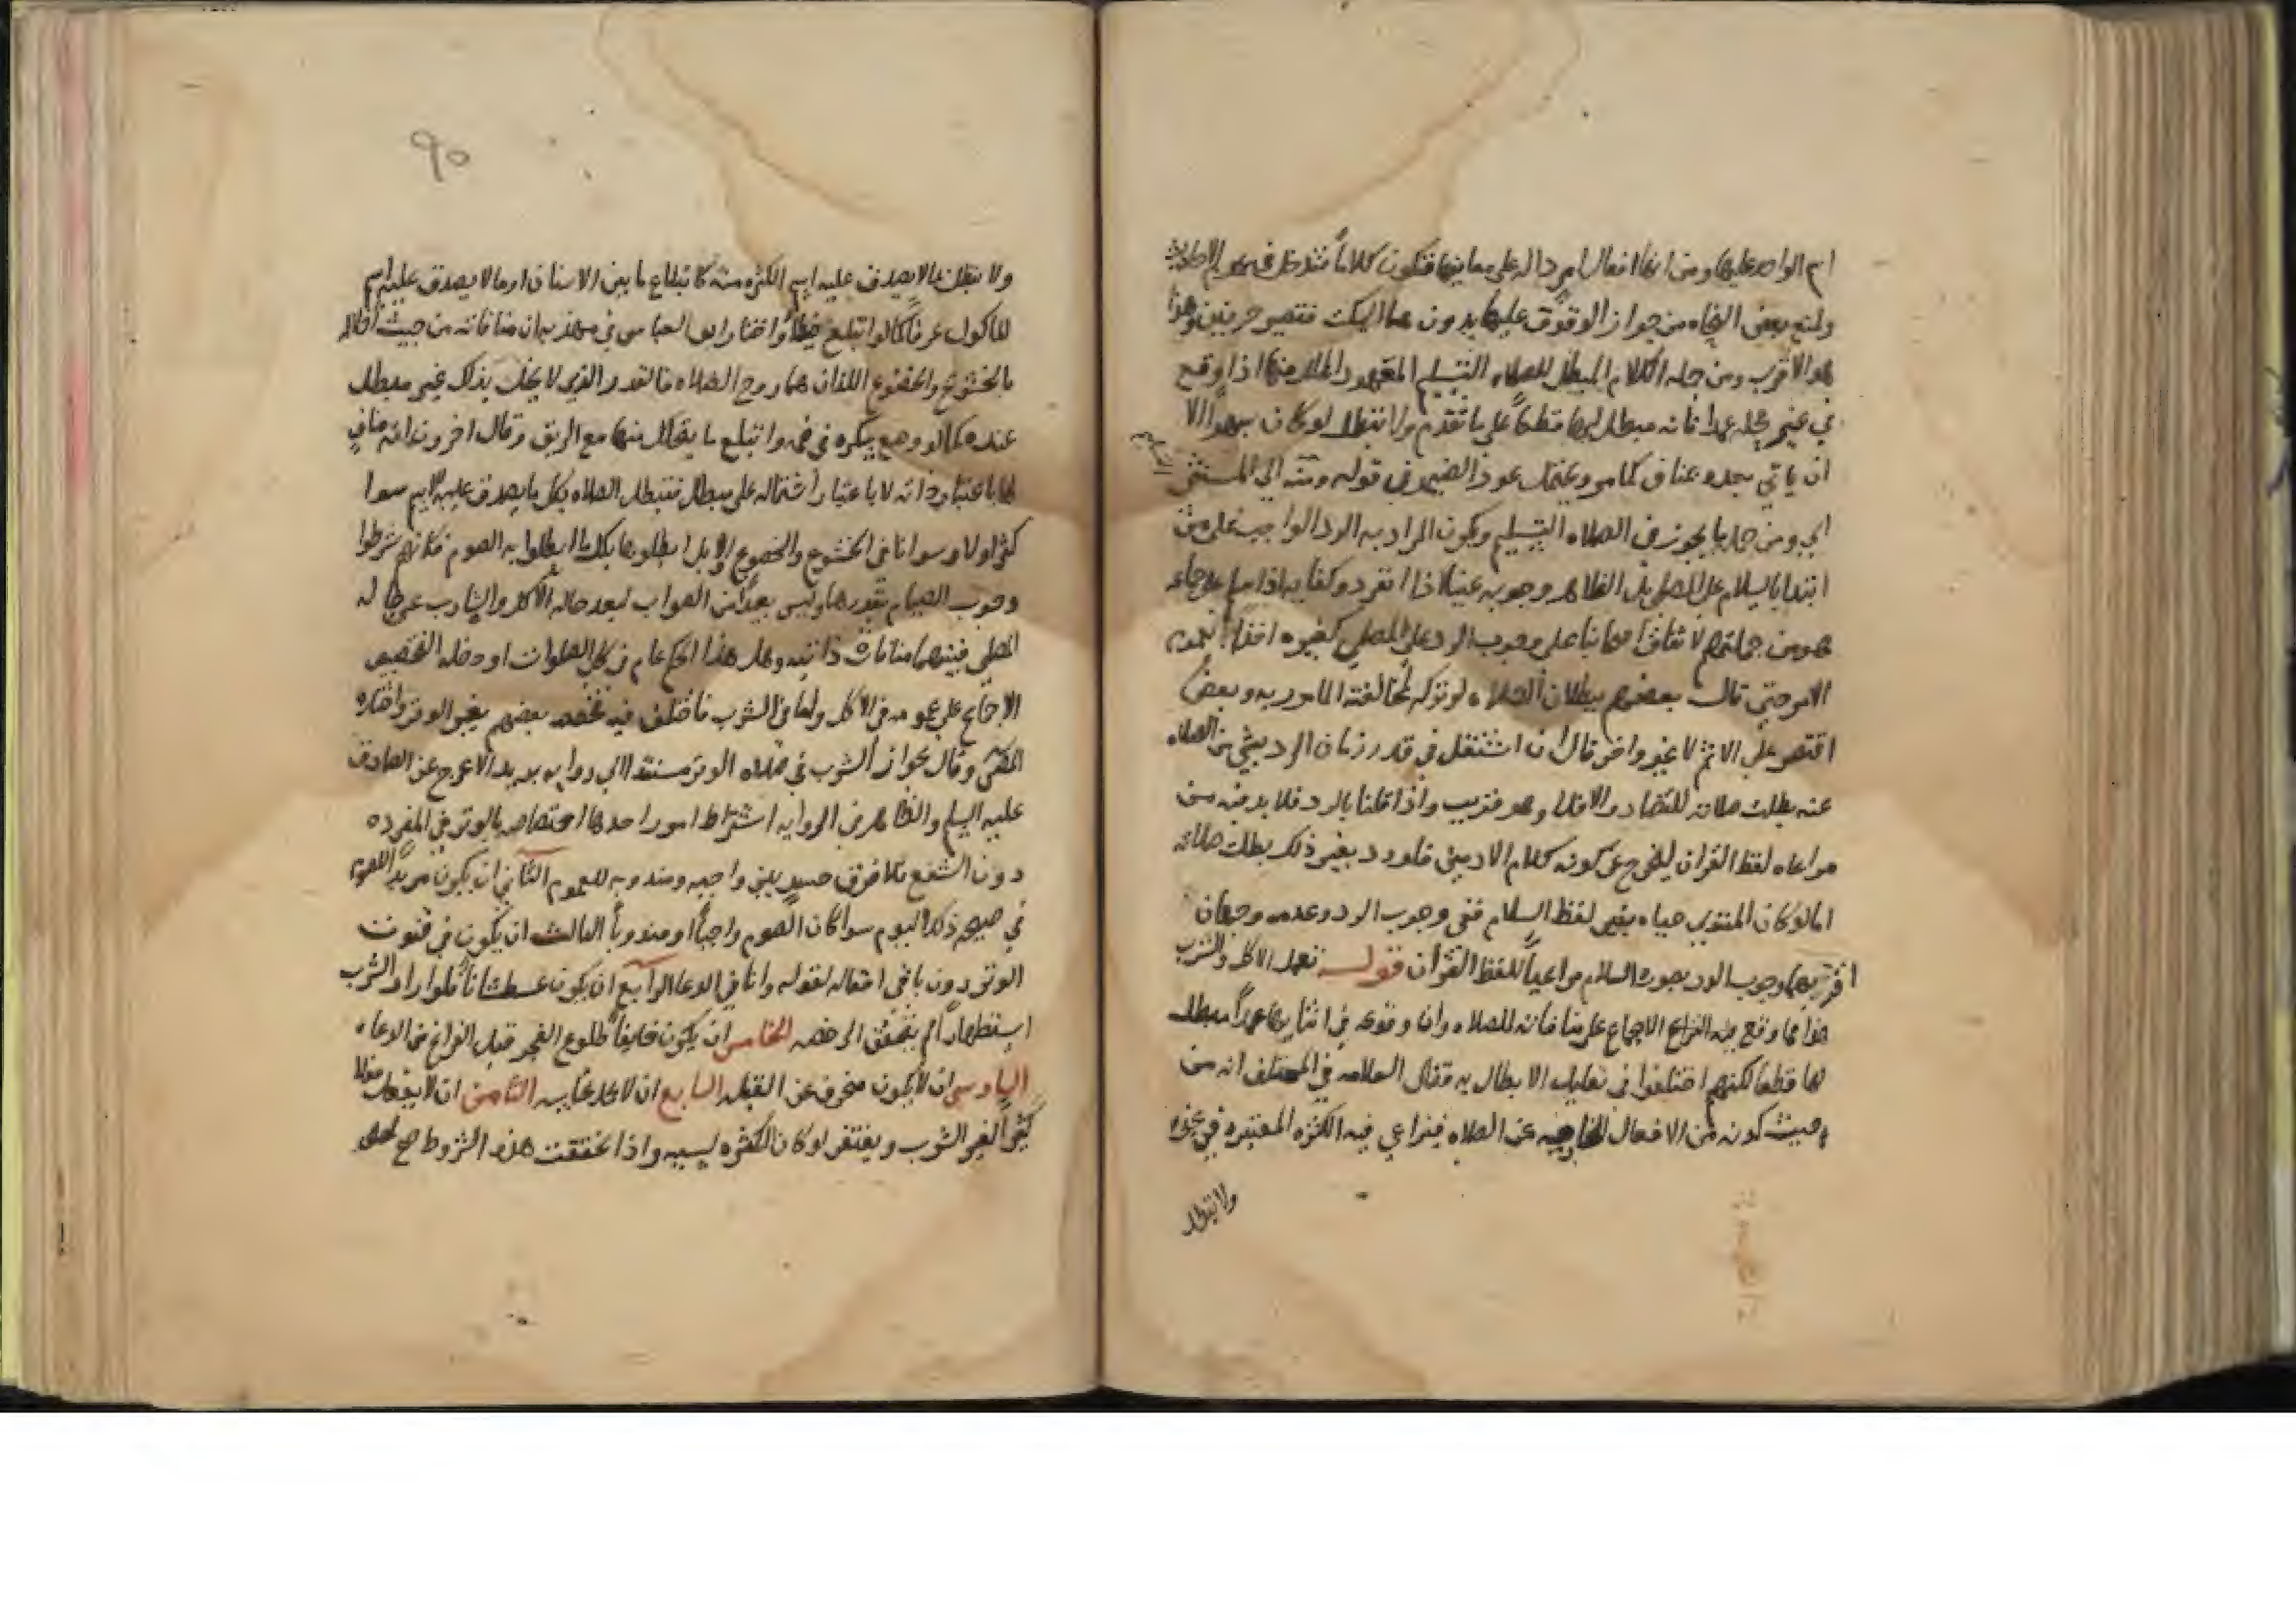 اسم الواحد عليها ومن انها افعال امر داله على معانيها فتكون كلاماً فتدخل في عموم الاحاديث
ولمنع بعض النحاه من جواز الوقوف عليها بدون هاء السكت فتصير حرفين وهذا
هو الاقرب ومن جمله الكلام المبطل للصلاه التسليم المعهود المحلل منها اذا وقع
في غير محله عمدا فانه مبطل لها قطعاً على ما تقدم ولا تبطل لو كان سهواً الا
ان ياتي بعده بمناف كما مر ويحتمل عود الضمير في قوله ومنه الى المستثنى
اي ومن جمله ما يجوز في الصلاه التسليم ويكون المراد به الرد الواجب على من
ابتدا بالسلام على المصلي بل الظاهر وجوبه عيناً اذا انفرد وكفايه اذا سلم على جماعه
هو من جملتهم لاتفاق اصحابنا على وجوب الرد على المصلي كغيره اخذاً بعموم
الامر حتى قال بعضهم ببطلان الصلاه لو تركه لمخالفته المامور به وبعض
اقتصر على الاثم لا غير واخر قال ان اشتغل في قدر زمان الرد بشي من الصلاه
عنه بطلت صلاته للتضاد والا فلا وهو قريب واذا قلنا بالرد فلا بد فيه من
مراعاه لفظ القران ليخرج عن كونه كلام الادميين فلو رد بغير ذلك بطلت صلاته
اما لو كان المبتدي حياه بغير لفظ السلام ففي وجوب الرد وعدمه وجهان
اقربهما وجوب الرد بصوره السلام مراعياً للفظ القران قوله تعمد الاكل والشرب
هذا مما وقع فيه النزاع الاجماع على منافاته للصلاه وان وقوعه في اثنايها عمداً مبطل
لها قطعا لكنهم اختلفوا في تعليل الابطال به فقال العلامه في المختلف انه من
حيث كونه من الافعال الخارجيه عن الصلاه فيراعي فيه الكثره المعتبره في غيره
ولا تبطل
٩٥
ولا تبطل بما لا يصدق عليه اسم الكثره منه كابتلاع ما بين الاسنان او ما لا يصدق عليه اسم
الماكول عرفاً كما لو ابتلع خيطاً واختار ابو العباس في مهذبه ان منافاته من حيث اخلاله
بالخشوع والخضوع اللذان هما روح الصلاه فالقدر الذي لا يخل بذلك غير مبطل
عنده كما لو وضع سكره في فمه وابتلع ما يتحلل منها مع الريق وقال اخرون انه مناف
لها باعتبار ذاته لا باعتبار اشتماله على مبطل فتبطل الصلاه بكل ما يصدق عليه الاسم سوا
كثر اولا وسوا نافى الخشوع والخضوع او لا بل ابطلوها بكل ما ابطلوا به الصوم فكانهم شرطوا
وجوب الصيام بقدرها وليس بعيداً من الصواب لبعد حاله الاكل والشارب عن حاله
المصلي فبينهما منافات ذاتيه وهل هذا الحكم عام في كل الصلوات او دخله التخصيص
الاجماع على عمومه في الاكل واما في الشرب فاختلف فيه فخصه بعضهم بغير الوتر واختاره
المص وقال بجواز الشرب في صلاه الوتر مستندا الى روايه سعيد الاعرج عن الصادق
عليه السلم والظاهر من الروايه اشتراط امور احدها اختصاصه بالوتر في المفرده
دون الشفع فلا فرق حينئذ بين واجبه ومندوبه للعموم الثاني ان يكون مريداً للصوم
في صبيحه ذلك اليوم سوا كان الصوم واجباً او مندوباً الثالث ان يكون في قنوت
الوتر دون باقي افعاله لقوله وانا في الدعا الرابع ان يكون عطشاناً فلو اراد الشرب
استظهاراً لم يتحقق الرخصه الخامس ان يكون خايفاً طلوع الفجر قبل الفراغ من الدعاء
السادس ان لا يكون منحرف عن القبله السابع ان لا يحمل نجاسه الثامن ان لا يفعل فعلا
كثيراً لغير الشرب ويغتفر لو كان الكثره لسببه واذا تحققت هذه الشروط صح